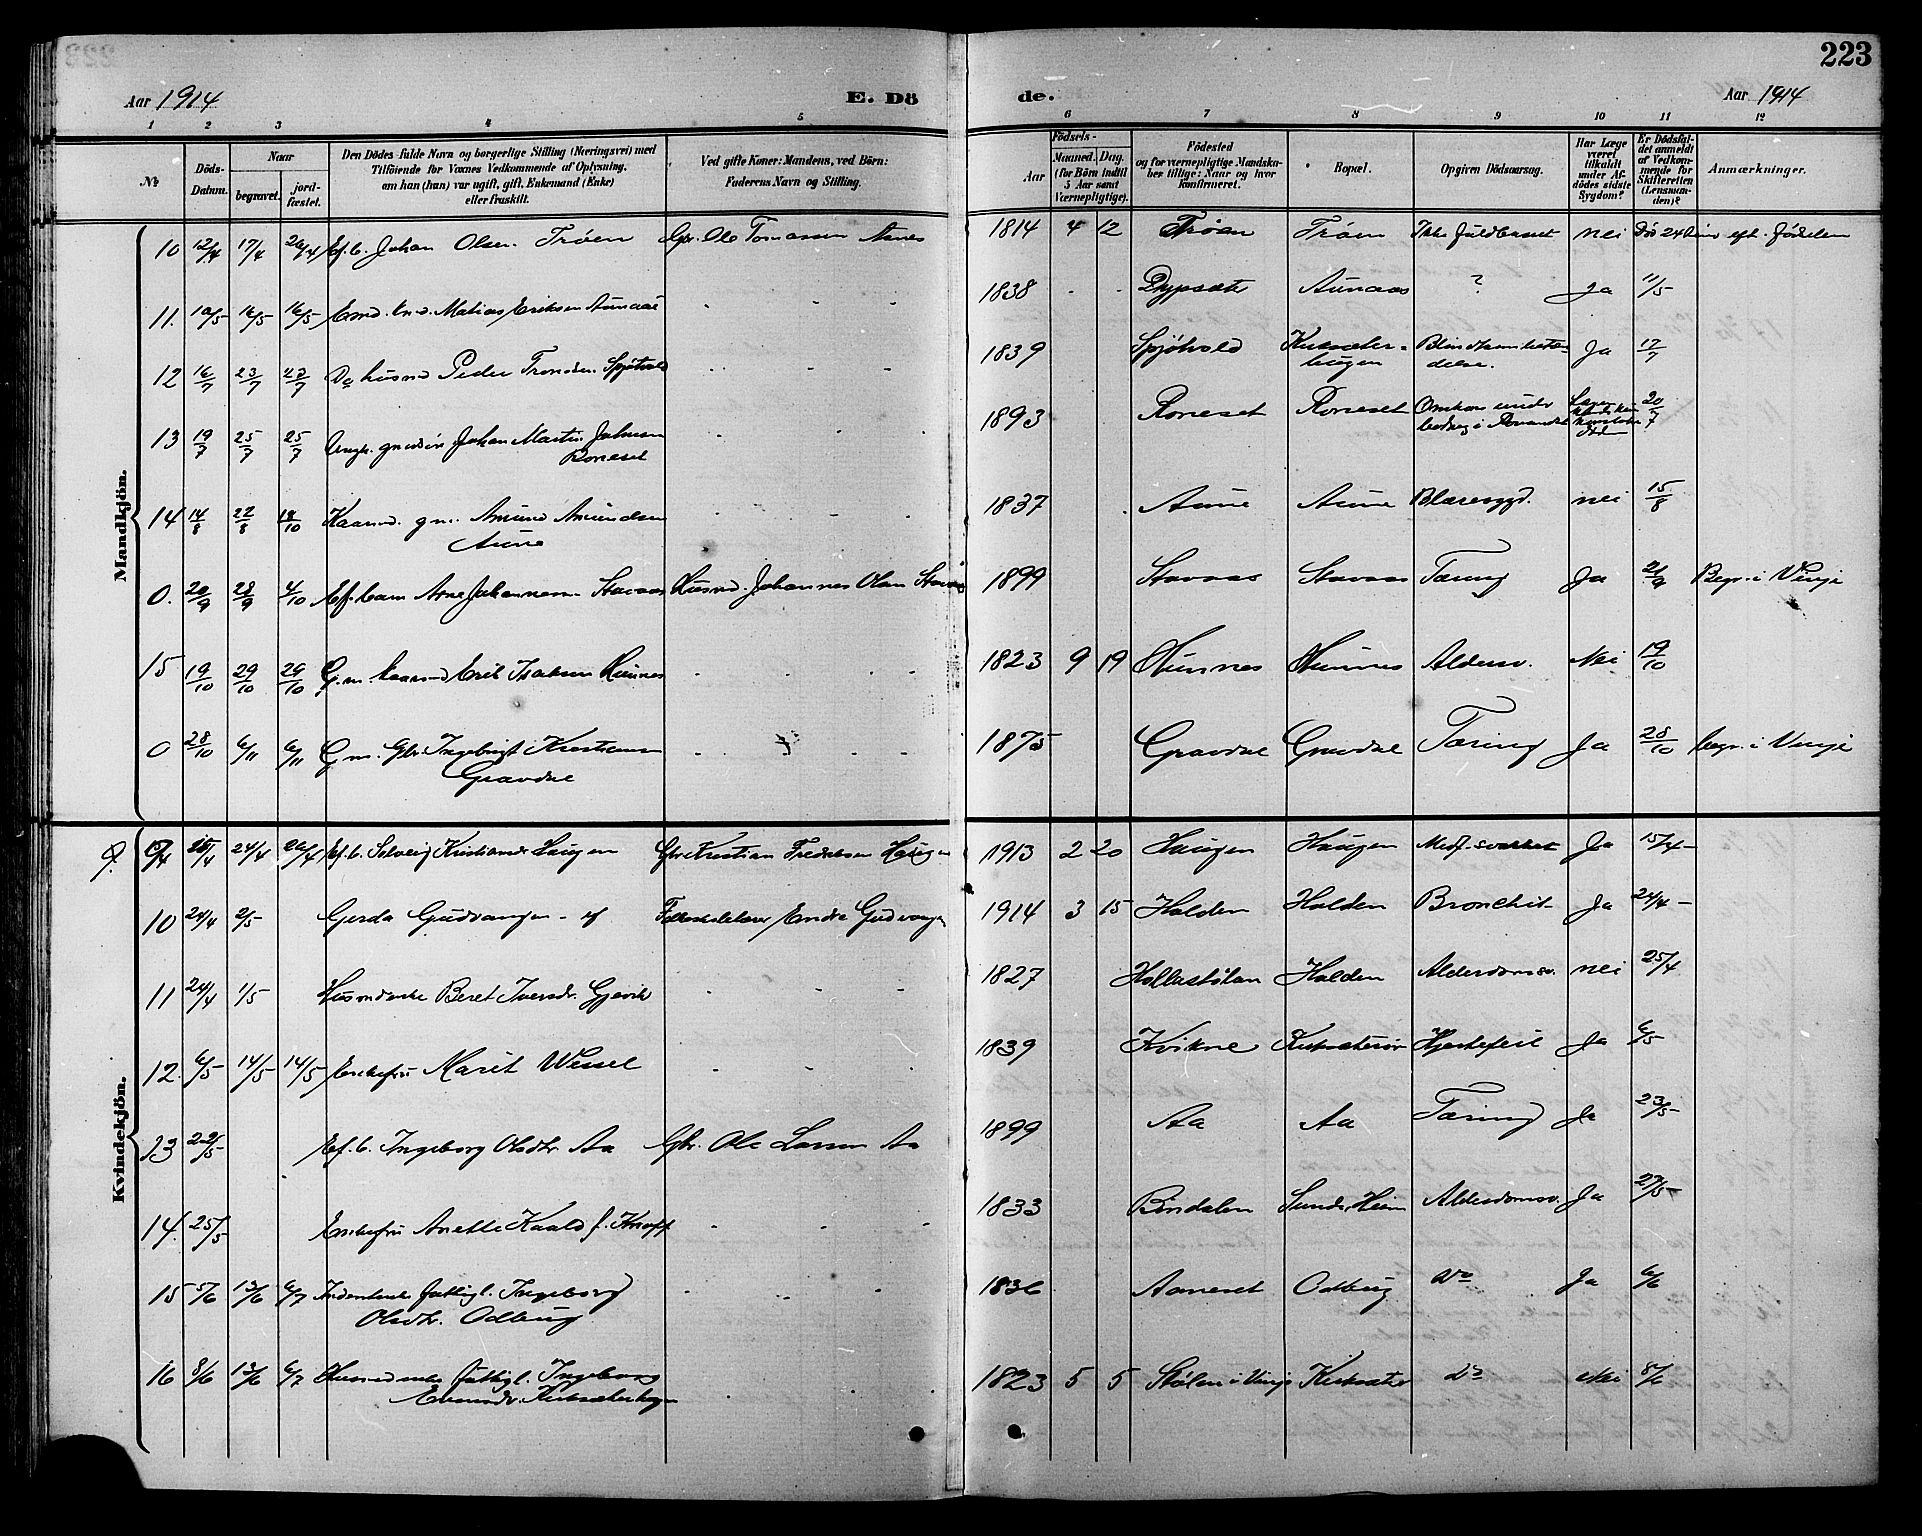 223
Aar 1914
E. Dö
de.
Aar 1914
1 2 3 4 5 6 7 8 9 10 11 12
No
Döds-Datum.
Naar
begravet.
jord-fæstet.
Den Dödes fulde Navn og borgerlige Stilling (Næringsvei) med
Tilföiende for Voxnes Vedkommende af Oplysning,
om han (hun) var ugift, gift, Enkemand (Enke)
eller fraskilt.
Ved gifte Koner: Mandens, ved Börn:
Faderens Navn og Stilling.
Födsels-
Aar
Maaned. Dag.
(for Börn indtil
5 Aar samt
Værnepligtige).
Födested
og for værnepligtige Mandska-
ber tillige: Naar og hvor
konfirmeret.
Bopæl.
Opgiven Dödsaarsag.
Har Læge
været
tilkaldt
under Af-
dödes sidste
Sygdom?
Er Dödsfal-
det anmeldt
af Vedkom-
mende for
Skifteretten
(Lensman-
den)?
Anmærkninger.
Mandkjön.
10 12/4 17/4 26/4 Ef. b. Johan Olsen Trøen Gbr. Ole Tomassen Aanes 1814 4 12 Trøen Trøen Ikke fuldbaaret nei Død 24 eft. fødselen
11. 10/5 16/5 16/5 Matias Eriksen Aunaas 1838 ? Aunaas ? Ja 11/5
12 16/7 23/7 23/7 Do husmd Peder Trondsen Spjøtvold 1839 Spjøtvold Kirksæter-
haugen Blindtarmbetæn-
delse. Ja 17/7
13 19/7 25/7 25/7 Johan Martin Johnsen
Roneset 1893 Roneset Roneset Omkom under 20/7
14 14/8 22/8 18/10 Kaarmd. gm. Amund Amundsen
Aune 1837 Aune Aune Blæresygd. nei 15/8
0. 20/9 28/9 4/10 Ef. barn Arne Johannesen Stavaas Husmd. Johannes Olsen Stavaas 1899 Stavaas Stavaas Tæring Ja 21/9 Begr. i Vinje
15 19/10 29/10 29/10 G.m. kaarmd Erik Isaksen Hunnes 1823 9 19 Hunnes Hunnes Aldersv. Nei 19/10
0 28/10 6/11 6/11 G.m. Gbr. Ingebrigt Kristiansen
Gravdal 1875 Gravdal Gravdal Tæring Ja 28/10 begr. i Vinje
Kvindekjön.
9. 15/4 24/4 26/4 Ef. b. Solveig Kristiansdr Haugen Gbr Kristian Fredriksen Haugen 1913 2 20 Haugen Haugen Medf. svakhet Ja 15/4 -
10 24/4 2/5 Gerda Gudvangen - ef Endre Gudvangen 1914 3 15 Holden Holden Bronchit - Ja 24/4 -
11 24/4 1/5 Husmdenke Beret Iversdr. Gjervik 1827 Hollastølan Holden Alderdomsv. nei 25/4
12. 6/5 14/5 14/5 Enkefru Marit Wessel 1839 Kvikne Kirksæterør Hjertefeil Ja 6/5
13 22/5 Ef. b. Ingeborg Olsdtr. Aa Gbr. Ole Larsen Aa 1899 Aa Aa Tæring Ja 23/5 -
14. 25/5 Enkefru Anette Kaald f. Knoff 1833 Bindalen Sunde, Heim Alderdomsv. Ja 27/5 -
15 5/6 13/6 6/7 fattigl. Ingeborg
Olsdtr. Odbug 1836 Aaneset Odbug do Ja 6/6
16 8/6 13/6 6/7 Husmdenke fattigl. Ingeborg
Kirksæterhaugen 1823 5 5 Stølen i Vinje Kirksæter do Nei 8/6